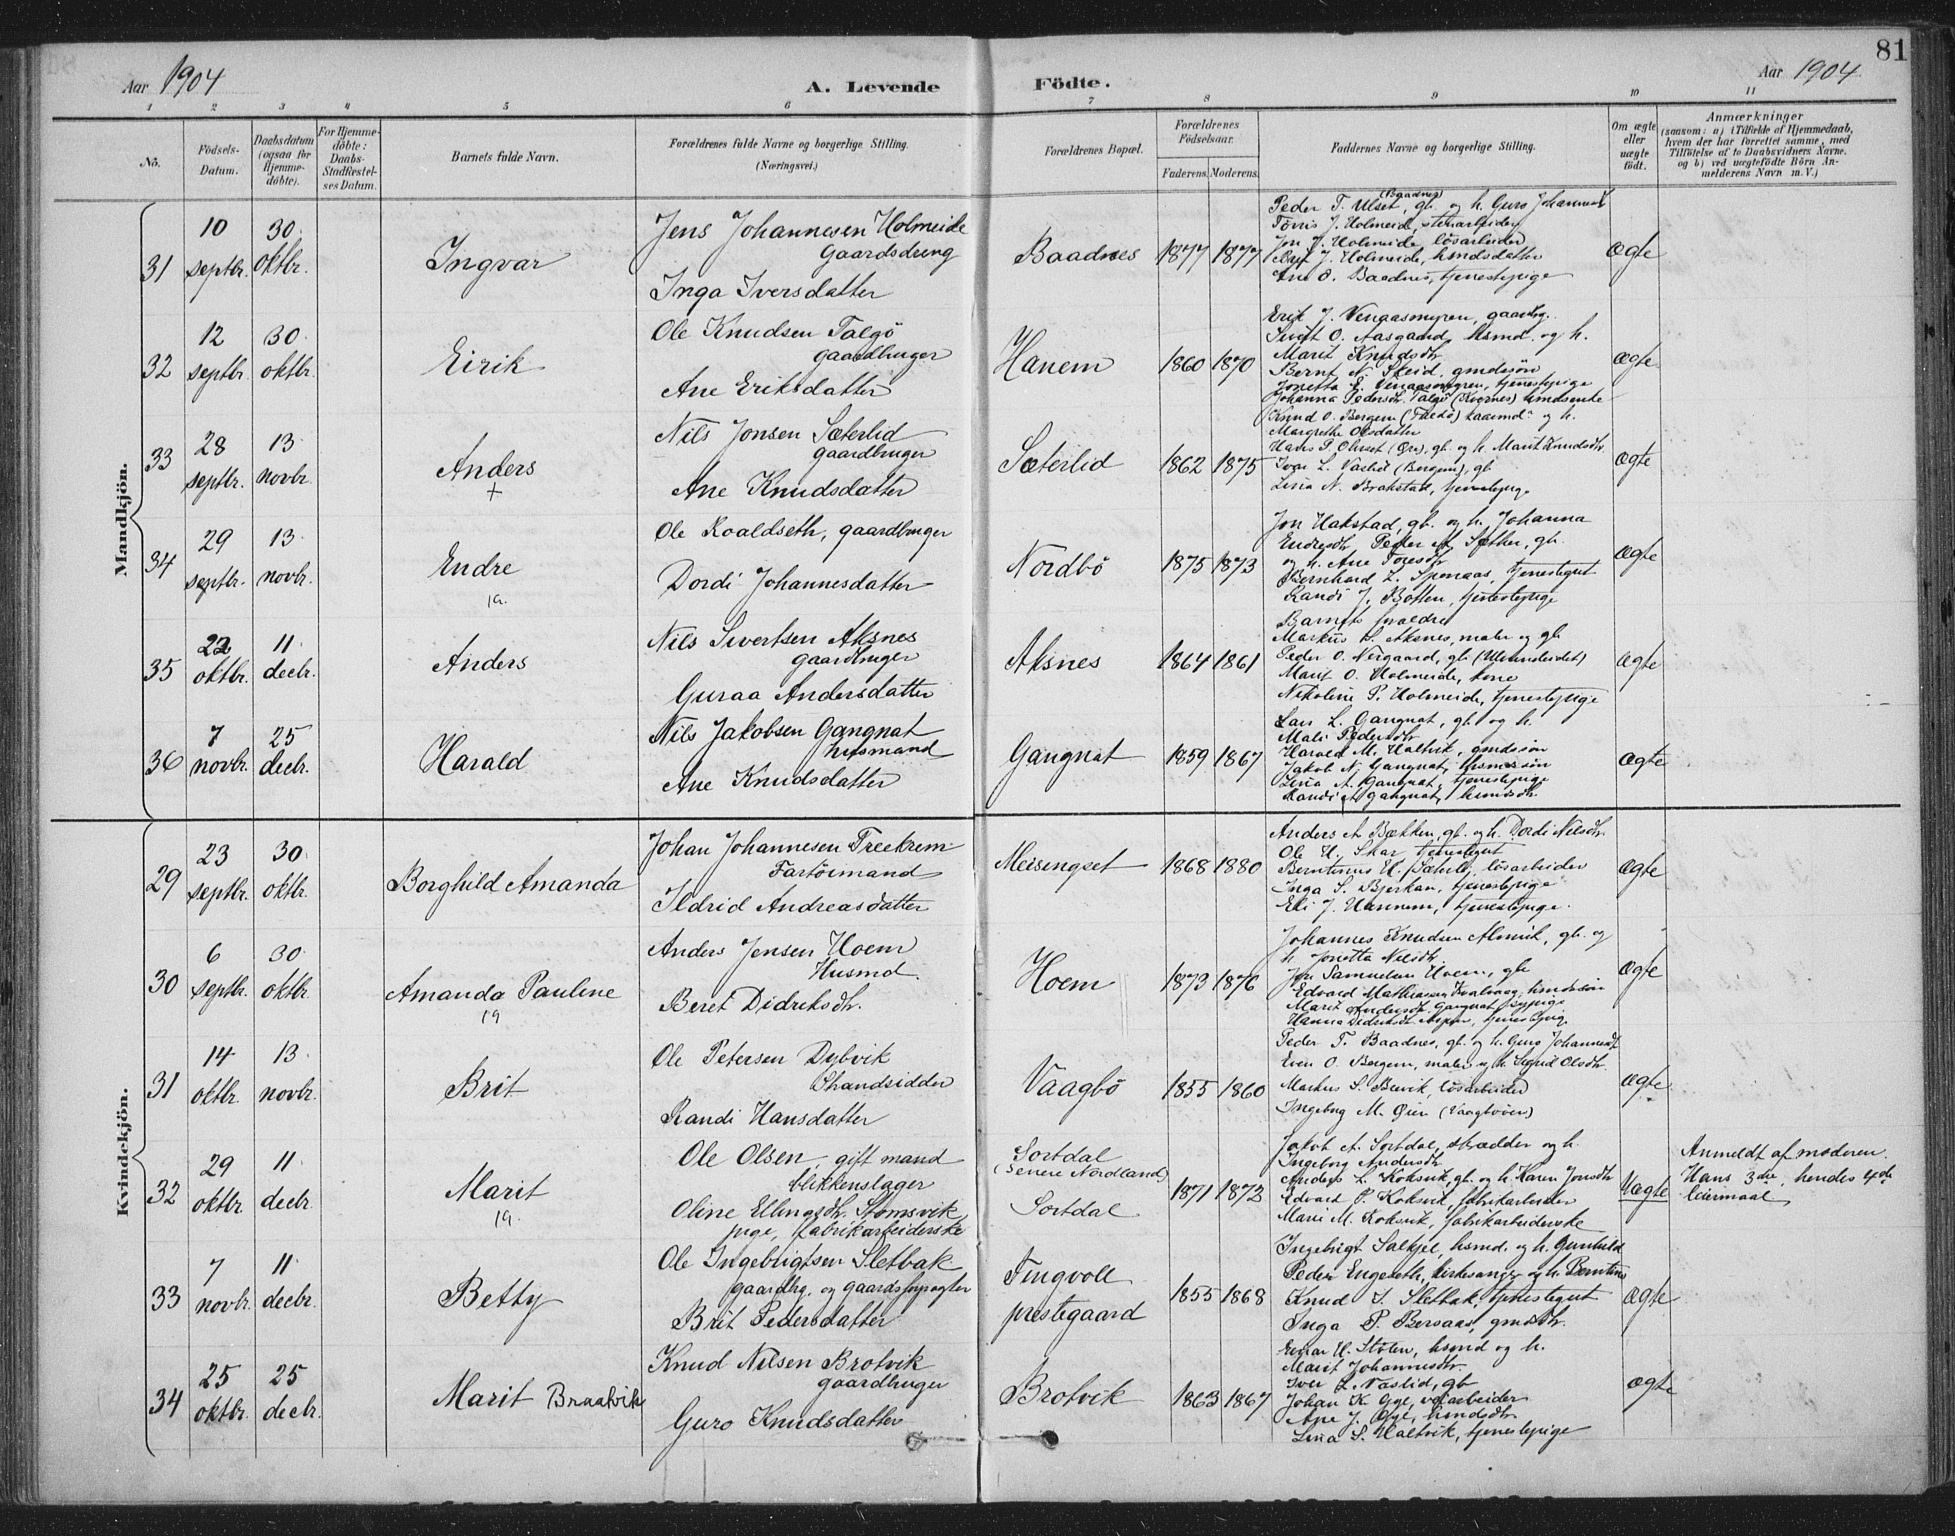 81
Aar 1904
A. Levende Födte.
Aar 1904.
1 2 3 4 5 6 7 8 9 10 11
No.
Födsels-
Datum.
Daabsdatum
(ogsaa for
Hjemme-
döbte).
For Hjemme-
döbte:
Daabs-
Stadfæstel-
ses Datum.
Barnets fulde Navn.
Forældrenes fulde Navne og borgerlige Stilling.
(Næringsvei.)
Forældrenes Bopæl.
Forældrenes
Födselsaar.
Faderens. Moderens.
Faddernes Navne og borgerlige Stilling.
Om ægte
eller
uægte
födt.
Anmærkninger
(saasom: a) i Tilfælde af Hjemmedaab,
hvem der har forrettet samme, med
Tilföielse af to Daabsvidners Navne.
og b) ved uægtefödte Börn An-
melderens Navn m. V.)
Mandkjön.
31
10 septbr.
30. oktbr.
Ingvar
Jens Johannesen Holmeide
Gaardsdreng
Inga Iversdatter
Baadnes
1877 1877
(Baadnes)
Peder T. Ulset, gb. og h. Guro Johannesd
Jon J. Holmeide, lösarbeider
Brit J. Holmeide, husmdsdatter
Ane O. Baadnes, tjenestepige
Ægte
32
12 septbr.
30. oktbr.
Eirik
Ole Knudsen Talgö
gaardbruger
Ane Eriksdatter
Hanem
1860 1870
Erik J. Venaasmyren, gaardbg.
Sivert O. Aasgaard, husmd. og h.
Marit Knudsdtr
Bernt N. Skeid, gmdssön
Jonetta E. Venaasmyren, tjenestepige
Johanna Pedersdtr. Talgö (Kvernes)
Ægte
33
28 septbr.
13. novbr.
Anders
+
Nils Jonsen Sæterlid
gaardbruger
Ane Knudsdatter
Sæterlid
1862 1875
Knud O. Bergem og h.
Margrethe Olsdatter
gb. og h. Marit Knudsdtr.
Iver L. Vaslid (Bergem), gb
Lina N. Brakstad, tjenestepige
Ægte
34
29 septbr.
13. novbr.
Endre
19.
Ole Roaldseth, gaardbruger
Dordi Johannesdatter
Nordbö
1875 1873
Jon Hakstad, gb. og h. Johanna
Endresdtr Peder A. Sæther, gb.
og h. Ane
Bernhard L. Spenaas, tjenestegut
Randi J. Botten, tjenestepige
Ægte
35
22 oktbr.
11 decbr.
Anders
Nils Sivertsen Aksnes
gaardbruger
Guraa Andersdatter
Aksnes
1864 1861
Barnets foreldre
Markus S. Aksnes, maler og gb
Peder O. Nergaard, gb. (Ulvundeidet)
Marit O. Holmeide, kone
Nikoline P. Holmeide, tjenestepige
Ægte
36
7 novbr.
25 decbr.
Harald
Nils Jakobsen Gangnat
husmand
Ane Knudsdatter
Gangnat
1859 1867
Lars L. Gangnat, gb. og h.
Mali Pedersdtr
Harald M. Haltvik, gmdssön
Jakob N. Gangnat, husmssön
Lina A. Gangnat, tjenestepige
Randi A. Gangnat, husmdsdtr.
Ægte
Kvindekjön.
29
23 septbr.
30. oktbr.
Borghild Amanda
Johan Johannesen Treekrem
Fartöimand
Ildrid Andreasdatter
Meisingset
1868 1880
Anders A. Bækken, gb. og h. Dordi Nilsdtr.
Ole H. Skar, tjenestegut
Berntinus H. Sæterlid, lösarbeider
Inga S. Bjerkan, tjenestepige
Eli J. Hannem, tjenestepige.
Ægte
30
6 septbr.
30. oktbr.
Amanda Pauline
19
Anders Jensen Hoem
Husmd.
Beret Didriksdtr.
Hoem
1873 1876
Johannes Knudsen Alnvik, gb. og
h. Jonetta Nilsdtr.
Jon Samuelsen Hoem, gb
Edvard Mathiasen Kvalvaag, husmdssön
Marit Andersdtr. Gangnat, sypige
Hanna Didriksdtr Aspen, tjenestepig.
Ægte
31
14 oktbr.
13. novbr.
Brit
Ole Petersen Dybvik
Strandsidder
Randi Hansdatter
Vaagbö
1855 1860
Peder T. Baadnes, gb. og h. Guro Johannesdt
Even O. Bergem, maler og h. Sigrid Olsdtr.
Markus S. Bervik, lösarbeider
Ingeborg M. Öien (Vaagböien)
Ægte
32
29 oktbr.
11 decbr.
Marit
19.
Ole Olsen, gift mand
blikkenslager
Oline Ellingsdtr. Stomsvik
pige, fabrikarbeiderske
Sortdal
(senere Nordland)
Sortdal
1871 1872
Jakob A. Sortdal, skrædder og h.
Ingeborg Andersdtr.
Anders L. Koksvik, gb. og h. Karen Jonsdtr
Edvard P. Koksvik, fabrikarbeider
Marie M. Koksvik, fabrikarbeiderske
Uægte
Anmeldt af moderen.
Hans 3die, hendes 4de
leiermaal
33
7 novbr.
11 decbr.
Betty
Ole Ingebrigtsen Sletbak
gaardbg. og gaardsforpagter
Brit Pedersdatter
Tingvoll
prestegaard
1855 1868
Ingebrigt Salkjel, husmd. og h. Gunhild
Peder Engeseth, kirkesanger og h. Berntine
Knud I. Sletbak, tjenestegut
Inga P. Bersaas, gmdsdtr.
Ægte
34
25 oktbr.
25 decbr.
Marit Braatvik
Knud Nilsen Brotvik
gaardbruger
Guro Knudsdatter
Brotvik
1863 1867
Einar H. Stölen, husmd og h.
Marit Johannesdtr.
Iver L. Vaslid, gb
Johan K. Gyl, veiarbeider
Ane J. Gyl, husmdsdtr
Lina S. Haltvik, tjenestepige
Ægte